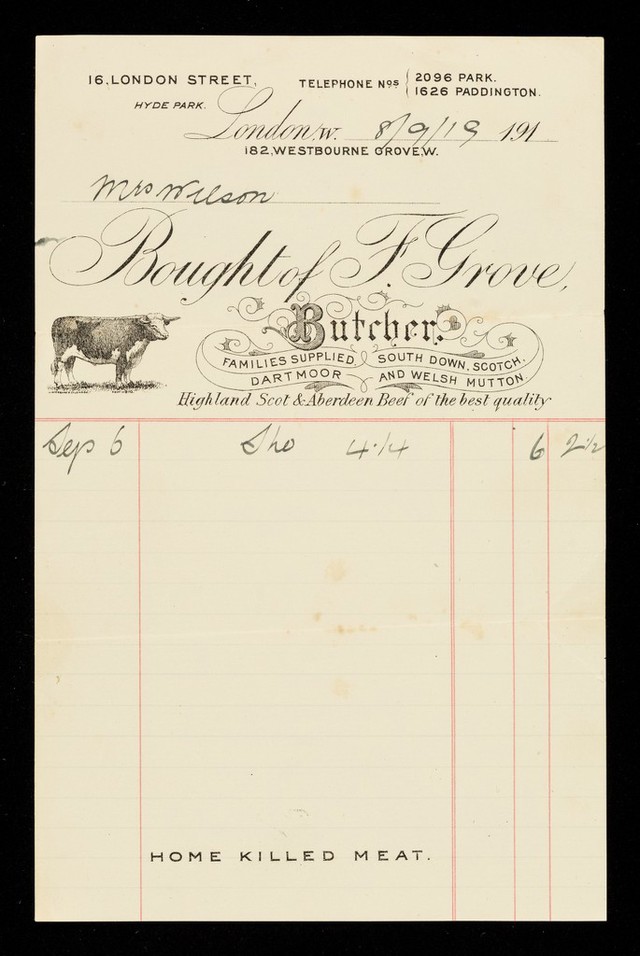 16, LONDON STREET,
HYDE PARK.
TELEPHONE Nos { 2096 PARK.
1626 PADDINGTON.
London, W. 8/9/19 191
182, WESTBOURNE GROVE, W.
Mrs Wilson
Bought of F. Grove,
Butcher.
FAMILIES SUPPLIED SOUTH DOWN, SCOTCH,
DARTMOOR AND WELSH MUTTON
Highland Scot & Aberdeen Beef of the best quality
Sep 6 Sho 4·1/4 6 2 1/2
HOME KILLED MEAT.